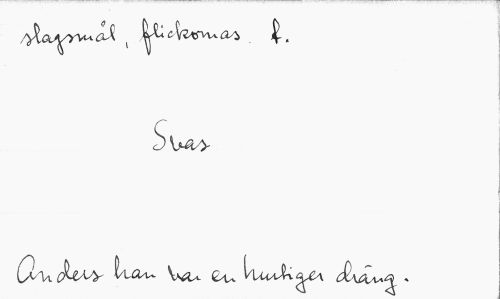 slagsmål, flickornas f.
Svas
Anders han var en hurtiger dräng.